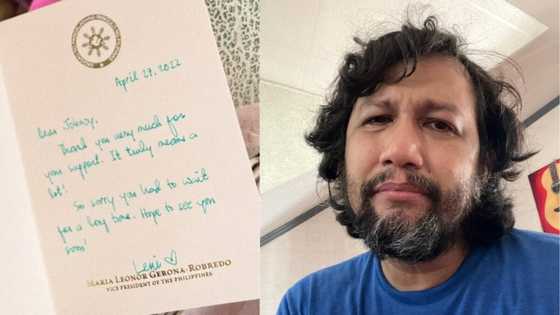 April 27, 2022
Dear Johnoy,
Thank you very much for
your support. It truly means a
lot!
So sorry you had to wait
for a long time. Hope to see you
soon!
Leni
MARIA LEONOR GERONA-ROBREDO
VICE PRESIDENT OF THE PHILIPPINES